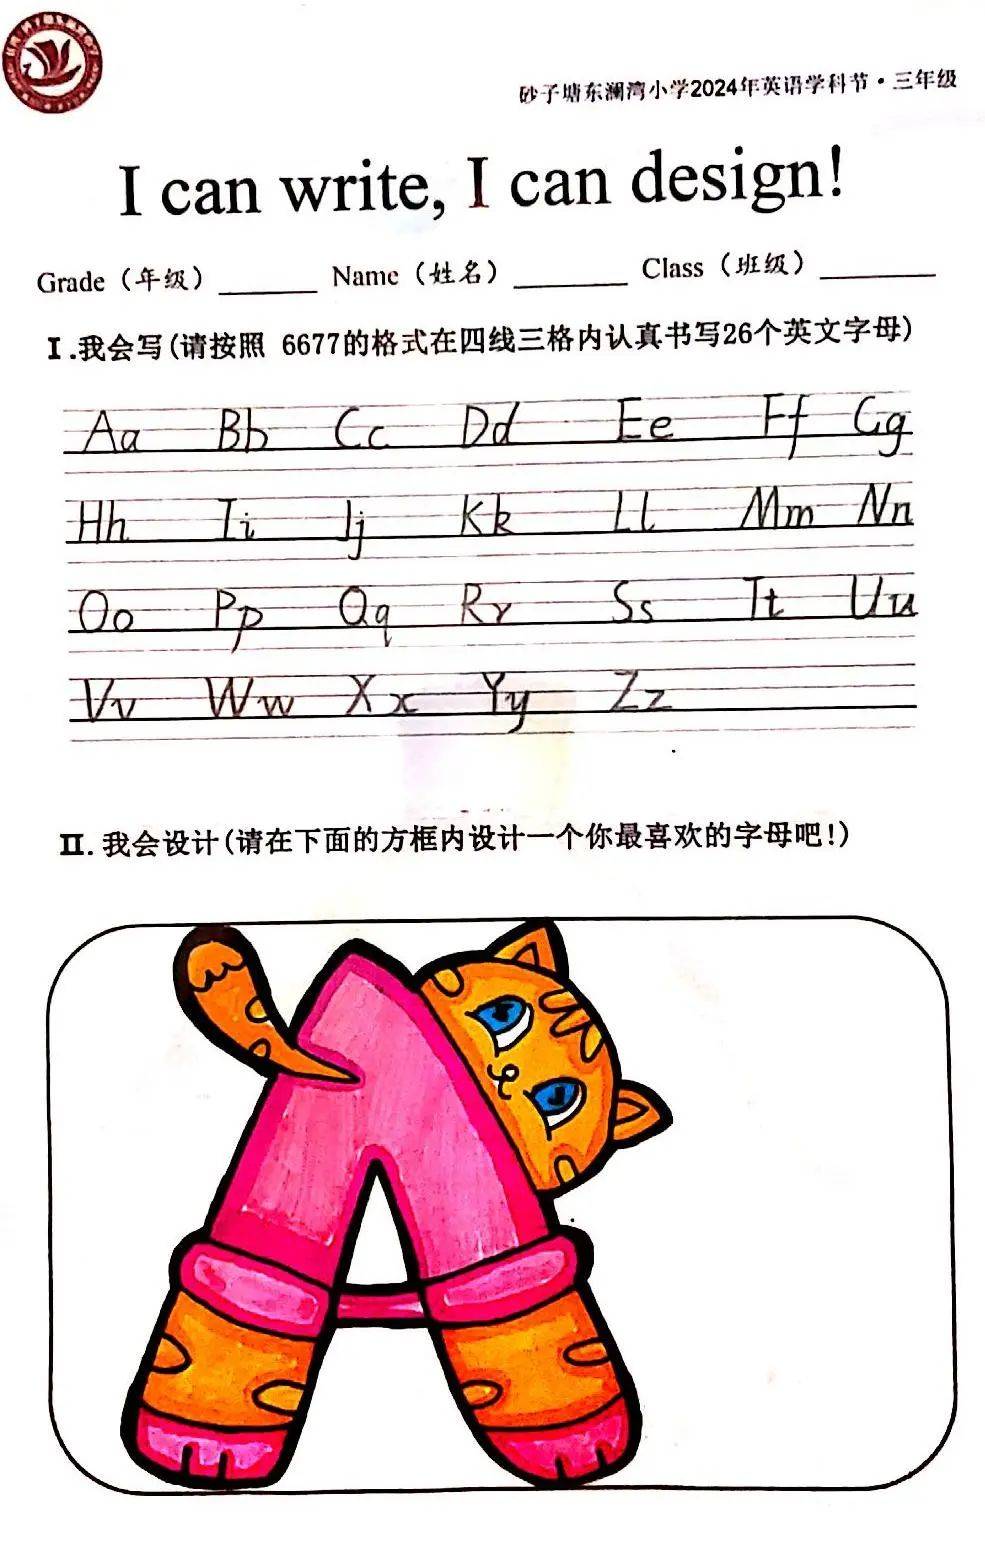 砂子塘东澜湾小学2024年英语学科节·三年级
I can write, I can design!
Grade（年级）______ Name（姓名）______ Class（班级）______
Ⅰ.我会写(请按照 6677的格式在四线三格内认真书写26个英文字母)
Aa Bb Cc Dd Ee Ff Gg
Hh Ii Jj Kk Ll Mm Nn
Oo Pp Qq Rr Ss Tt Uu
Vv Ww Xx Yy Zz
Ⅱ. 我会设计(请在下面的方框内设计一个你最喜欢的字母吧!)
A